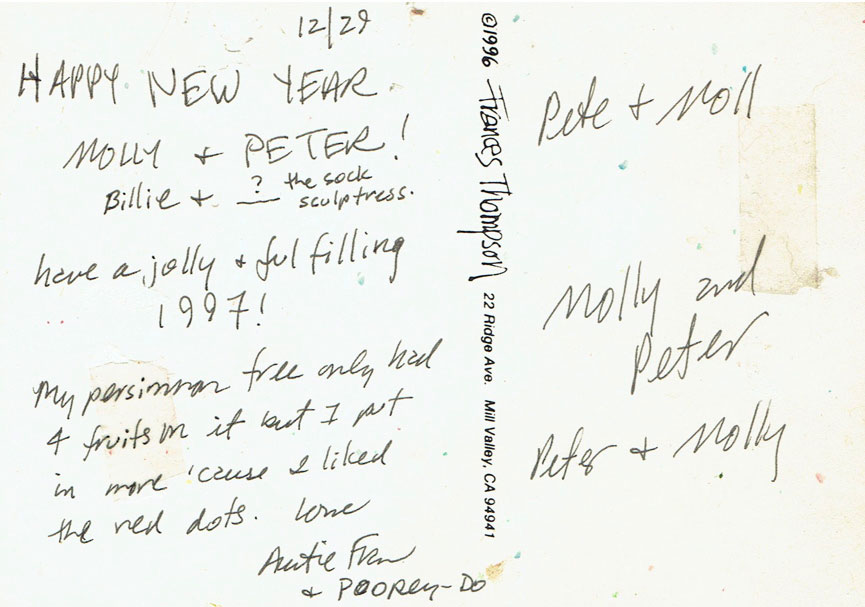 12/29
HAPPY NEW YEAR
MOLLY + PETER!
Billie + ? the sock
sculptress.
have a jolly + ful filling
1997!
My persimmon tree only had
4 fruits on it but I put
in more 'cause I liked
the red dots. Love
Autie Fran
+ POOREY-DO
©1996 Frances Thompson 22 Ridge Ave. Mill Valley, CA 94941
Pete + Moll
Molly and
Peter
Peter + Molly